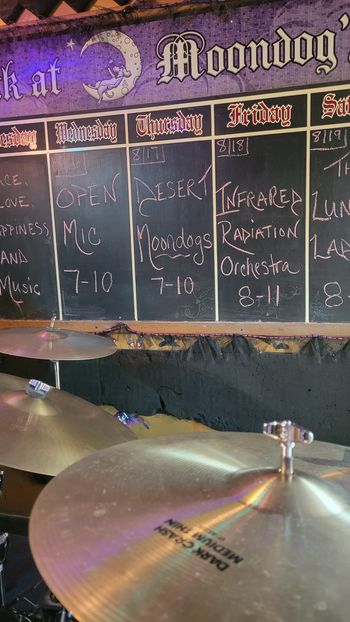 k at Moondog's
esday
Wednesday
Thursday
Friday
Sa
8/17
8/18
8/19
ACE,
LOVE,
HAPPINESS
AND
Music
OPEN
Mic
7-10
DESERT
Moondogs
7-10
INFRARED
RADIATION
Orchestra
8-11
TH
LUN
LAD
8-
DARK CRASH
MEDIUM THIN